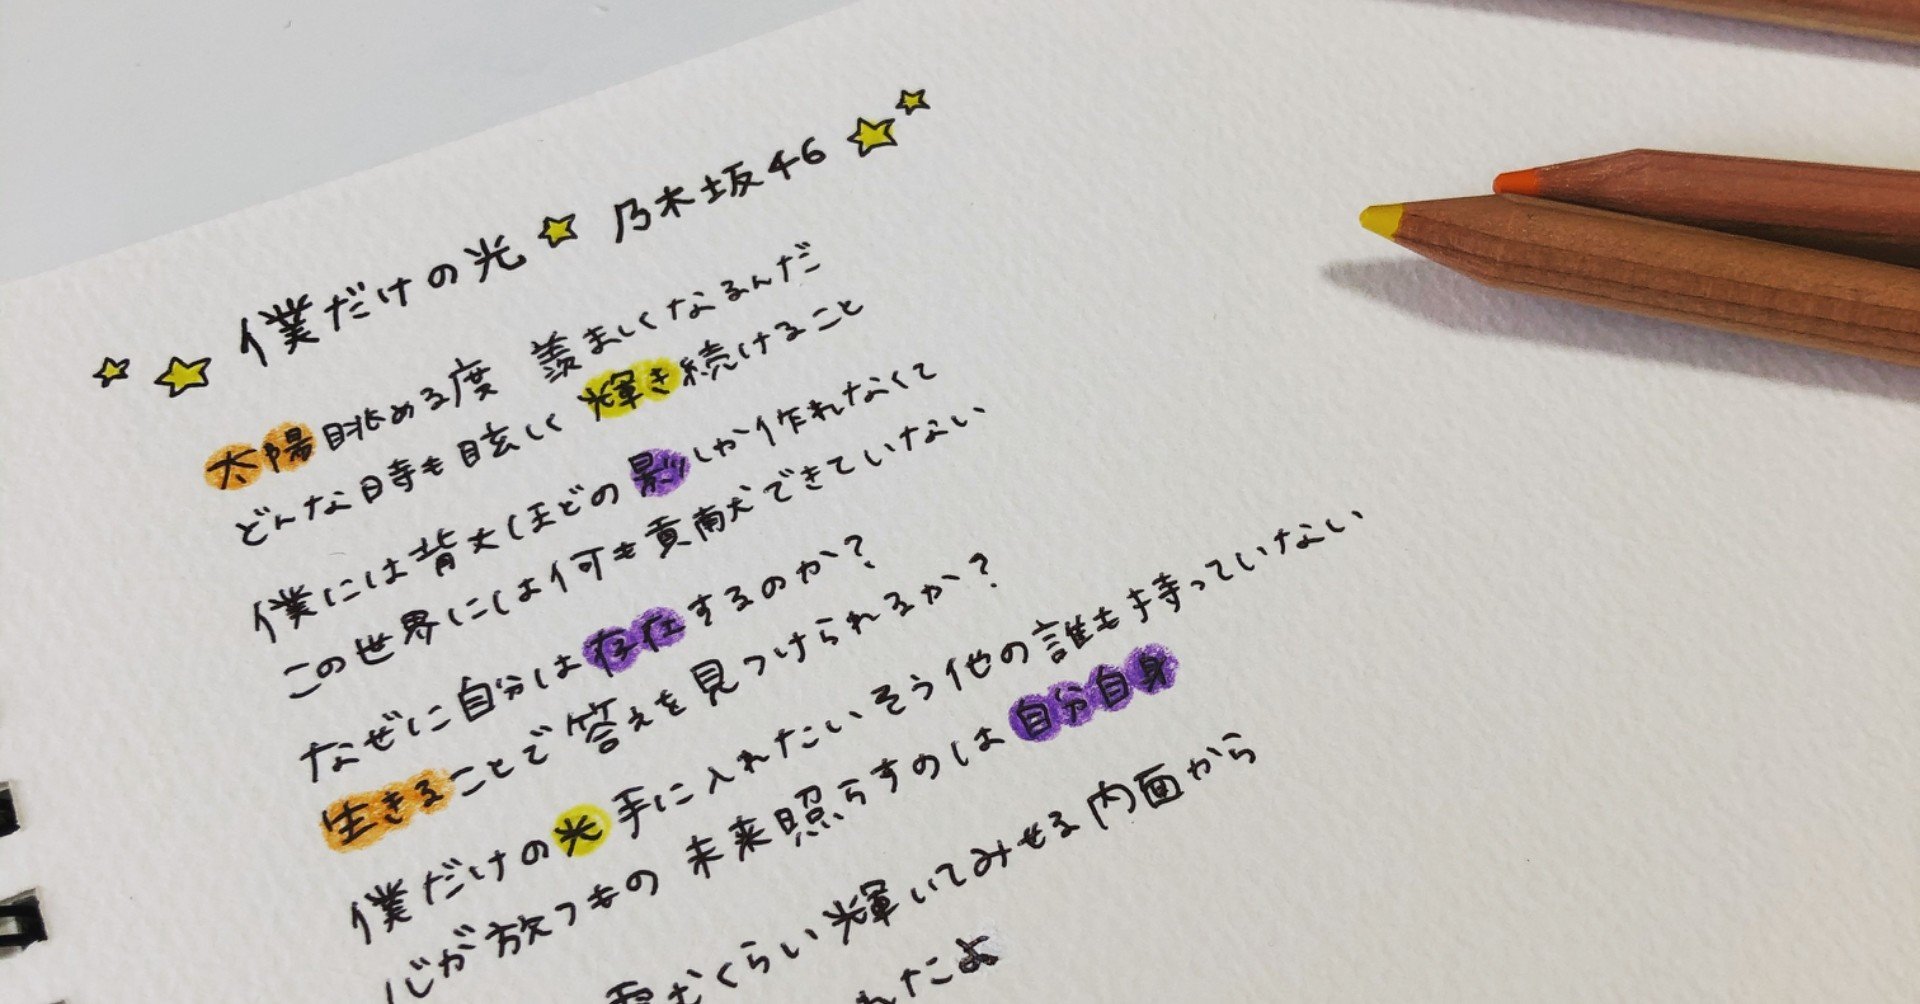 僕だけの光 乃木坂46
太陽眺める度 羨ましくなるんだ
どんな時も眩しく輝き続けること
僕には背丈ほどの影しか作れなくて
この世界には何も貢献できていない
なぜに自分は存在するのか?
生きることで答えを見つけられるか?
僕だけの光 手に入れたいそう他の誰も持っていない
心が放つもの 未来照らすのは自分自身
くらい輝いてみせる内面から
れたよ